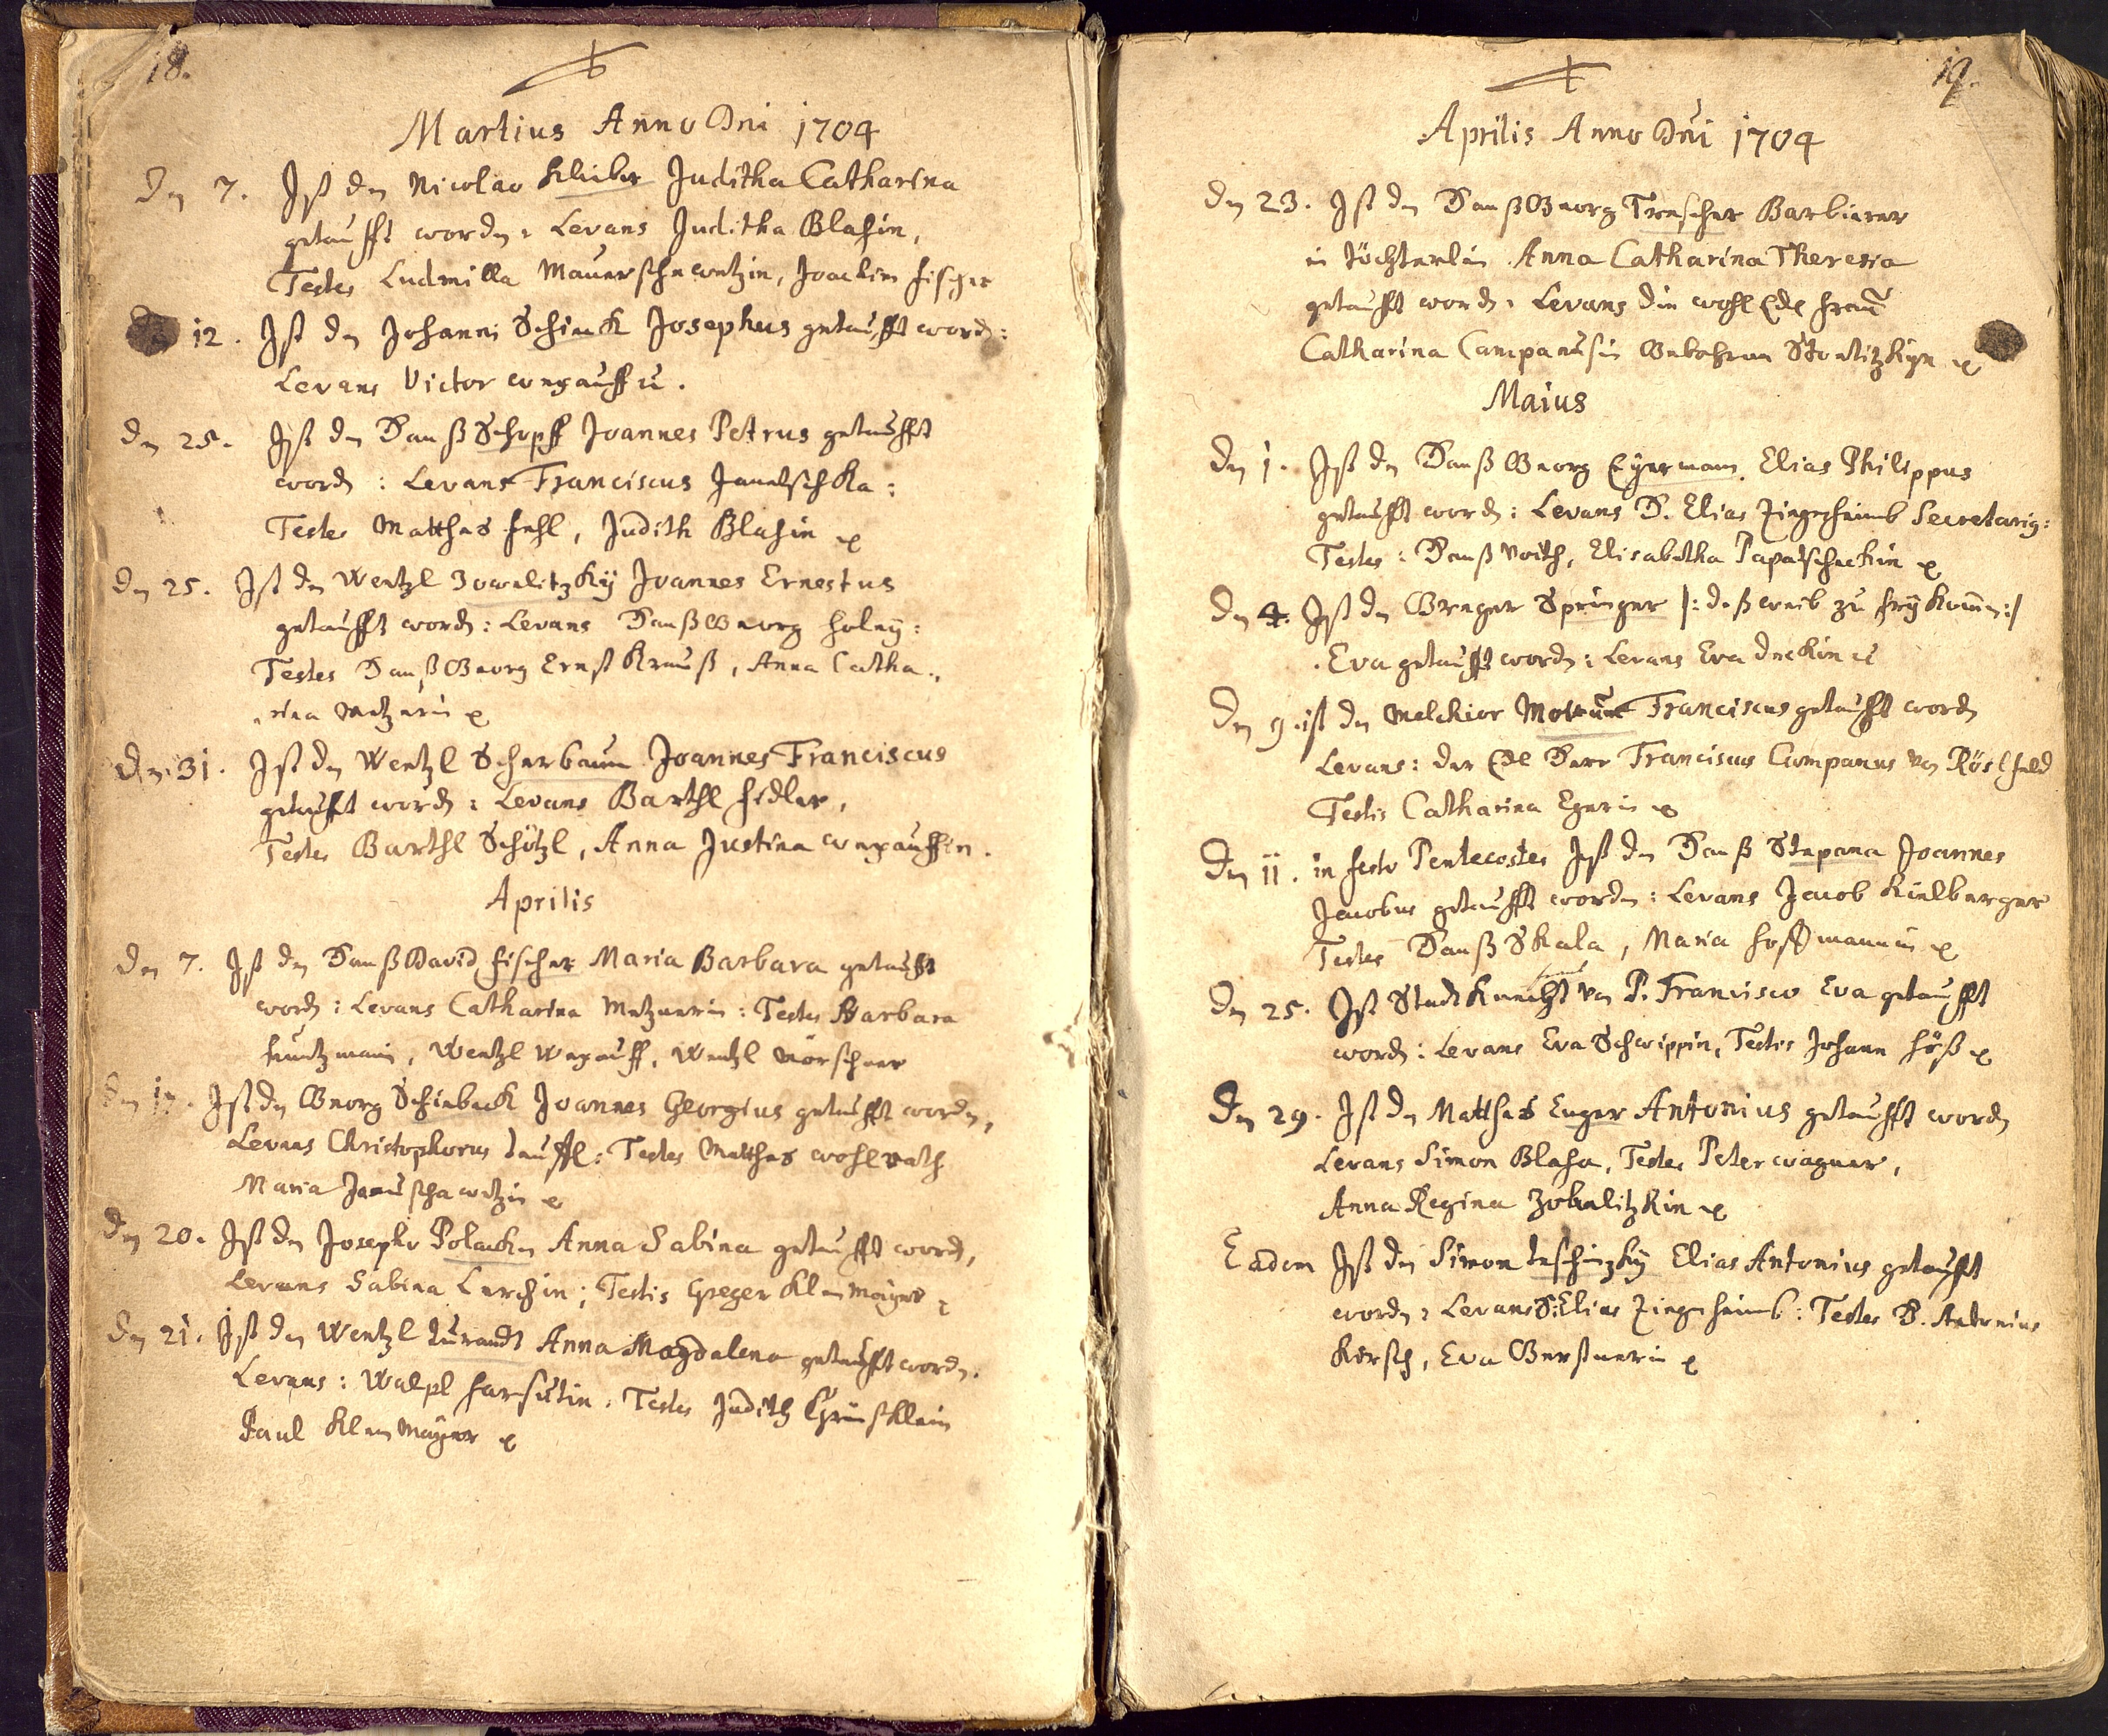 18.
Martius Anno Dni 1704
Den 7. Ist den Nicolao Kleiber Juditha Catharina
getaufft worden: Levans Juditha Blahin,
Testes Ludmilla, Joachim Fischer
12. Ist den Johanni Schinck Josephus getaufft word:
Levans Victor wegauff
den 25. Ist den Hanß Schopff Joannes Petrus getaufft
worden: Levans Franciscus Janatschka:
Testes Matthes Fehl, Judith Blahin
den 25. Ist den Wentzl Zowalitzkÿ Joannes Ernestus
getaufft worden: Levans Hanß Georg Holeÿ:
Testes Hanß Georg Ernst Krauß, Anna Catha-
rina Metznerin
Den 31. Ist den Wentzl Scherbaum Joannes Franciscus
getaufft worden: Levans Barthl Fidler,
Testes Barthl Schötzl, Anna Justina wegauffin.
Aprilis
den 7. Ist den Hanß David Fischer Maria Barbara getaufft
worden: Levans Catharina Metznerin: Testes Barbara
Wentzl Wegauff, Wentzl
Den Ist den Georg Schiebeck Joannes Georgius getaufft worden,
Levans Christophorus Teuffl: Testes Matthes wohlrath
Maria
Den 20. Ist den Josepho Polacken Anna Sabina getaufft word,
Levans Sabina Lerchin; Testis Greger Klenmayer
Den 21. Ist den Wentzl Anna Magdalena getaufft worden.
Levans: Walpl Testes Judith
Paul Klenmayer
19.
Aprilis Anno Dni 1704
Den 23. Ist den Hanß Georg Trescher Barbierer
ein Töchterlein Anna Catharina Theresia
getaufft worden: Levans die wohl Edl Fraŭ
Catharina Campanusin Gebohrene
Maius
Den 1. Ist den Hanß Georg Eÿermann Elias Philippus
getaufft worden: Levans H. Elias Ziegenheimb Secretarig:
Testes: Hanß Voith, Elisabetha Papatscheckin
Den 4. Ist den Greger Springer |: deß weib zu frÿ komen:|
Eva getaufft worden: Levans Eva
Den 9. ist den Melchior Franciscus getaufft worden
Levans: der Edl Herr Franciscus Campanus von Röslfeld
Testis Catharina Egerin
Den 11. in festo Pentecostes Ist den Hanß Stepana Joannes
Jacobus getaufft worden: Levans Jacob Kielberger
Testes Hanß Skala, Maria Hoffmannin
Den 25. Ist Stadtknecht von P. Francisco Eva getaufft
worden: Levans Eva Schwippin, Testis Johann Höß
Den 29. Ist den Matthes Enger Antonius getaufft worden
Levans Simon Blaha, Testes Peter wagner,
Anna Regina Zobalitzkin
Eadem Ist den Simon Elias Antonius getaufft
worden: Levans H. Elias Ziegenheimb: Testes H. Antonius
Kirsch, Eva Gerstnerin